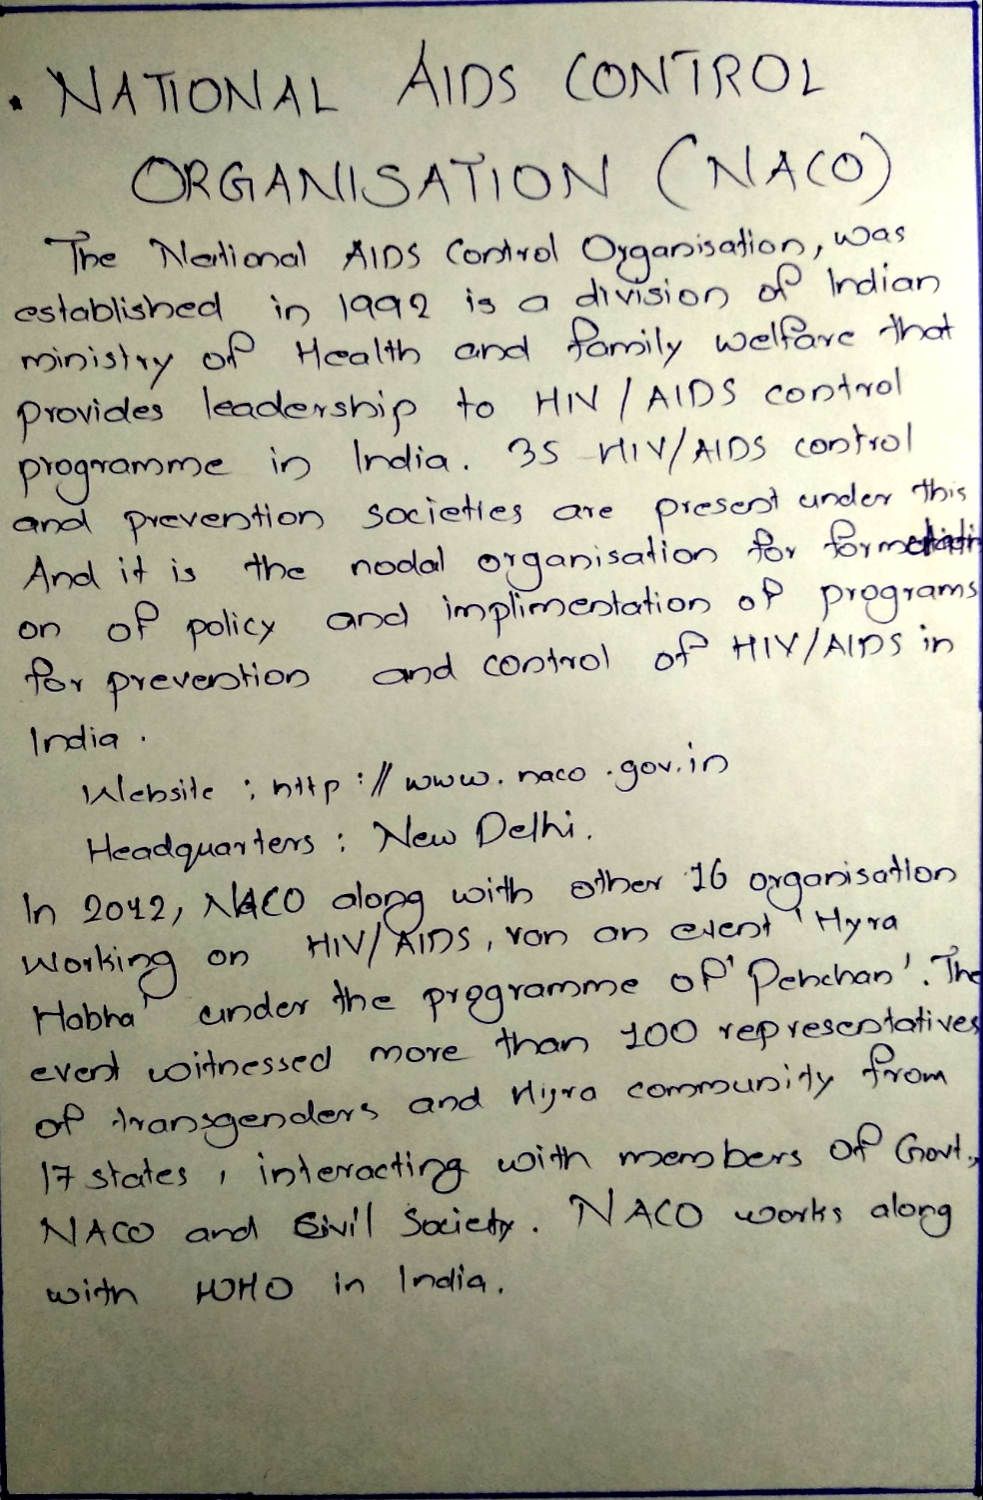 . NATIONAL AIDS CONTROL
ORGANISATION (NACO)
The National AIDS Control Organisation, was
established in 1992 is a division of Indian
ministry of Health and family welfare that
provides leadership to HIV / AIDS control
programme in India. 35 HIV/AIDS control
and prevention societies are present under this
And it is the nodal organisation for formati
on of policy and implimentation of programs
for prevention and control of HIV/AIDS in
India .
Website : http ://www.naco.gov.in
Headquarters : New Delhi.
In 2012, NACO along with other 16 organisation
working on HIV/AIDS, ran an event 'Hyra
Habha' under the programme of 'Pehchan'. The
event witnessed more than 100 representatives
of transgenders and Hijra community from
17 states , interacting with members of Govt.,
NACO and Civil Society. NACO works along
with WHO in India.